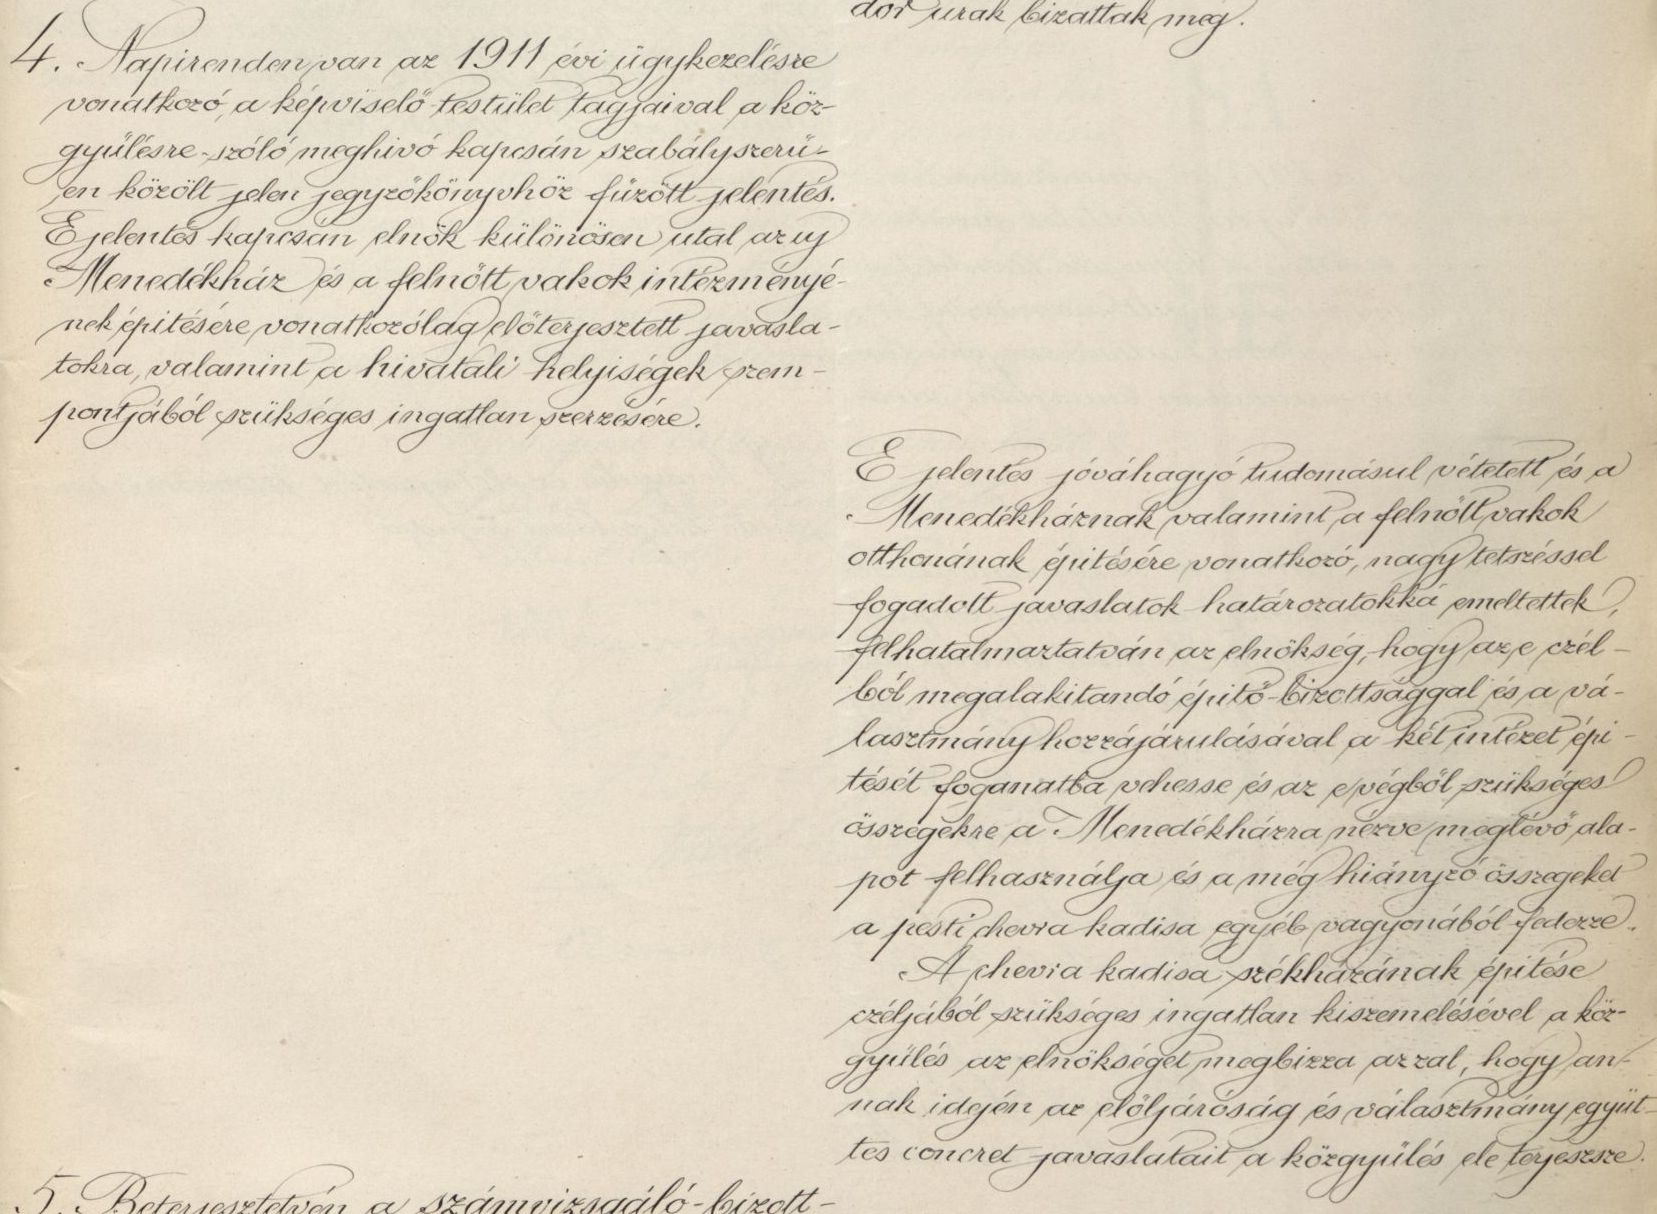 dor urak bizattak meg.
4. Napirenden van az 1911 évi ügykezelésre
vonatkozó, a képviselő testület tagjaival a köz-
gyülésre szóló meghivó kapcsán szabályszerü-
en közölt jelen jegyzőkönyvhöz füzött jelentés.
E jelentés kapcsán elnök különösen utal az uj
Menedékház és a felnőtt vakok intézményé-
nek épitésére vonatkozólag előterjesztett javasla-
tokra, valamint a hivatali helyiségek szem-
pontjából szükséges ingatlan szerzésére.
E jelentés jóváhagyó tudomásul vétetett és a
Menedékháznak valamint a felnőtt vakok
otthonának épitésére vonatkozó, nagy tetszéssel
fogadott javaslatok határozatokká emeltettek,
felhatalmaztatván az elnökség, hogy az e czél-
ból megalakitandó épitő-bizottsággal és a vá-
lasztmány hozzájárulásával a két intézet épi-
tését foganatba vehesse és az e végből szükséges
összegekre a Menedékházra nézve meglévő ala-
pot felhasználja és a még hiányzó összegeket
a pesti chevra kadisa egyéb vagyonából fedezze.
A chevra kadisa székházának épitése
czéljából szükséges ingatlan kiszemelésével a köz-
gyülés az elnökséget megbizza azzal, hogy an-
nak idején az elöljáróság és választmány együt-
tes concret javaslatait a közgyülés ele terjeszsze.
5. Beterjesztetvén a számvizsgáló-bizott-